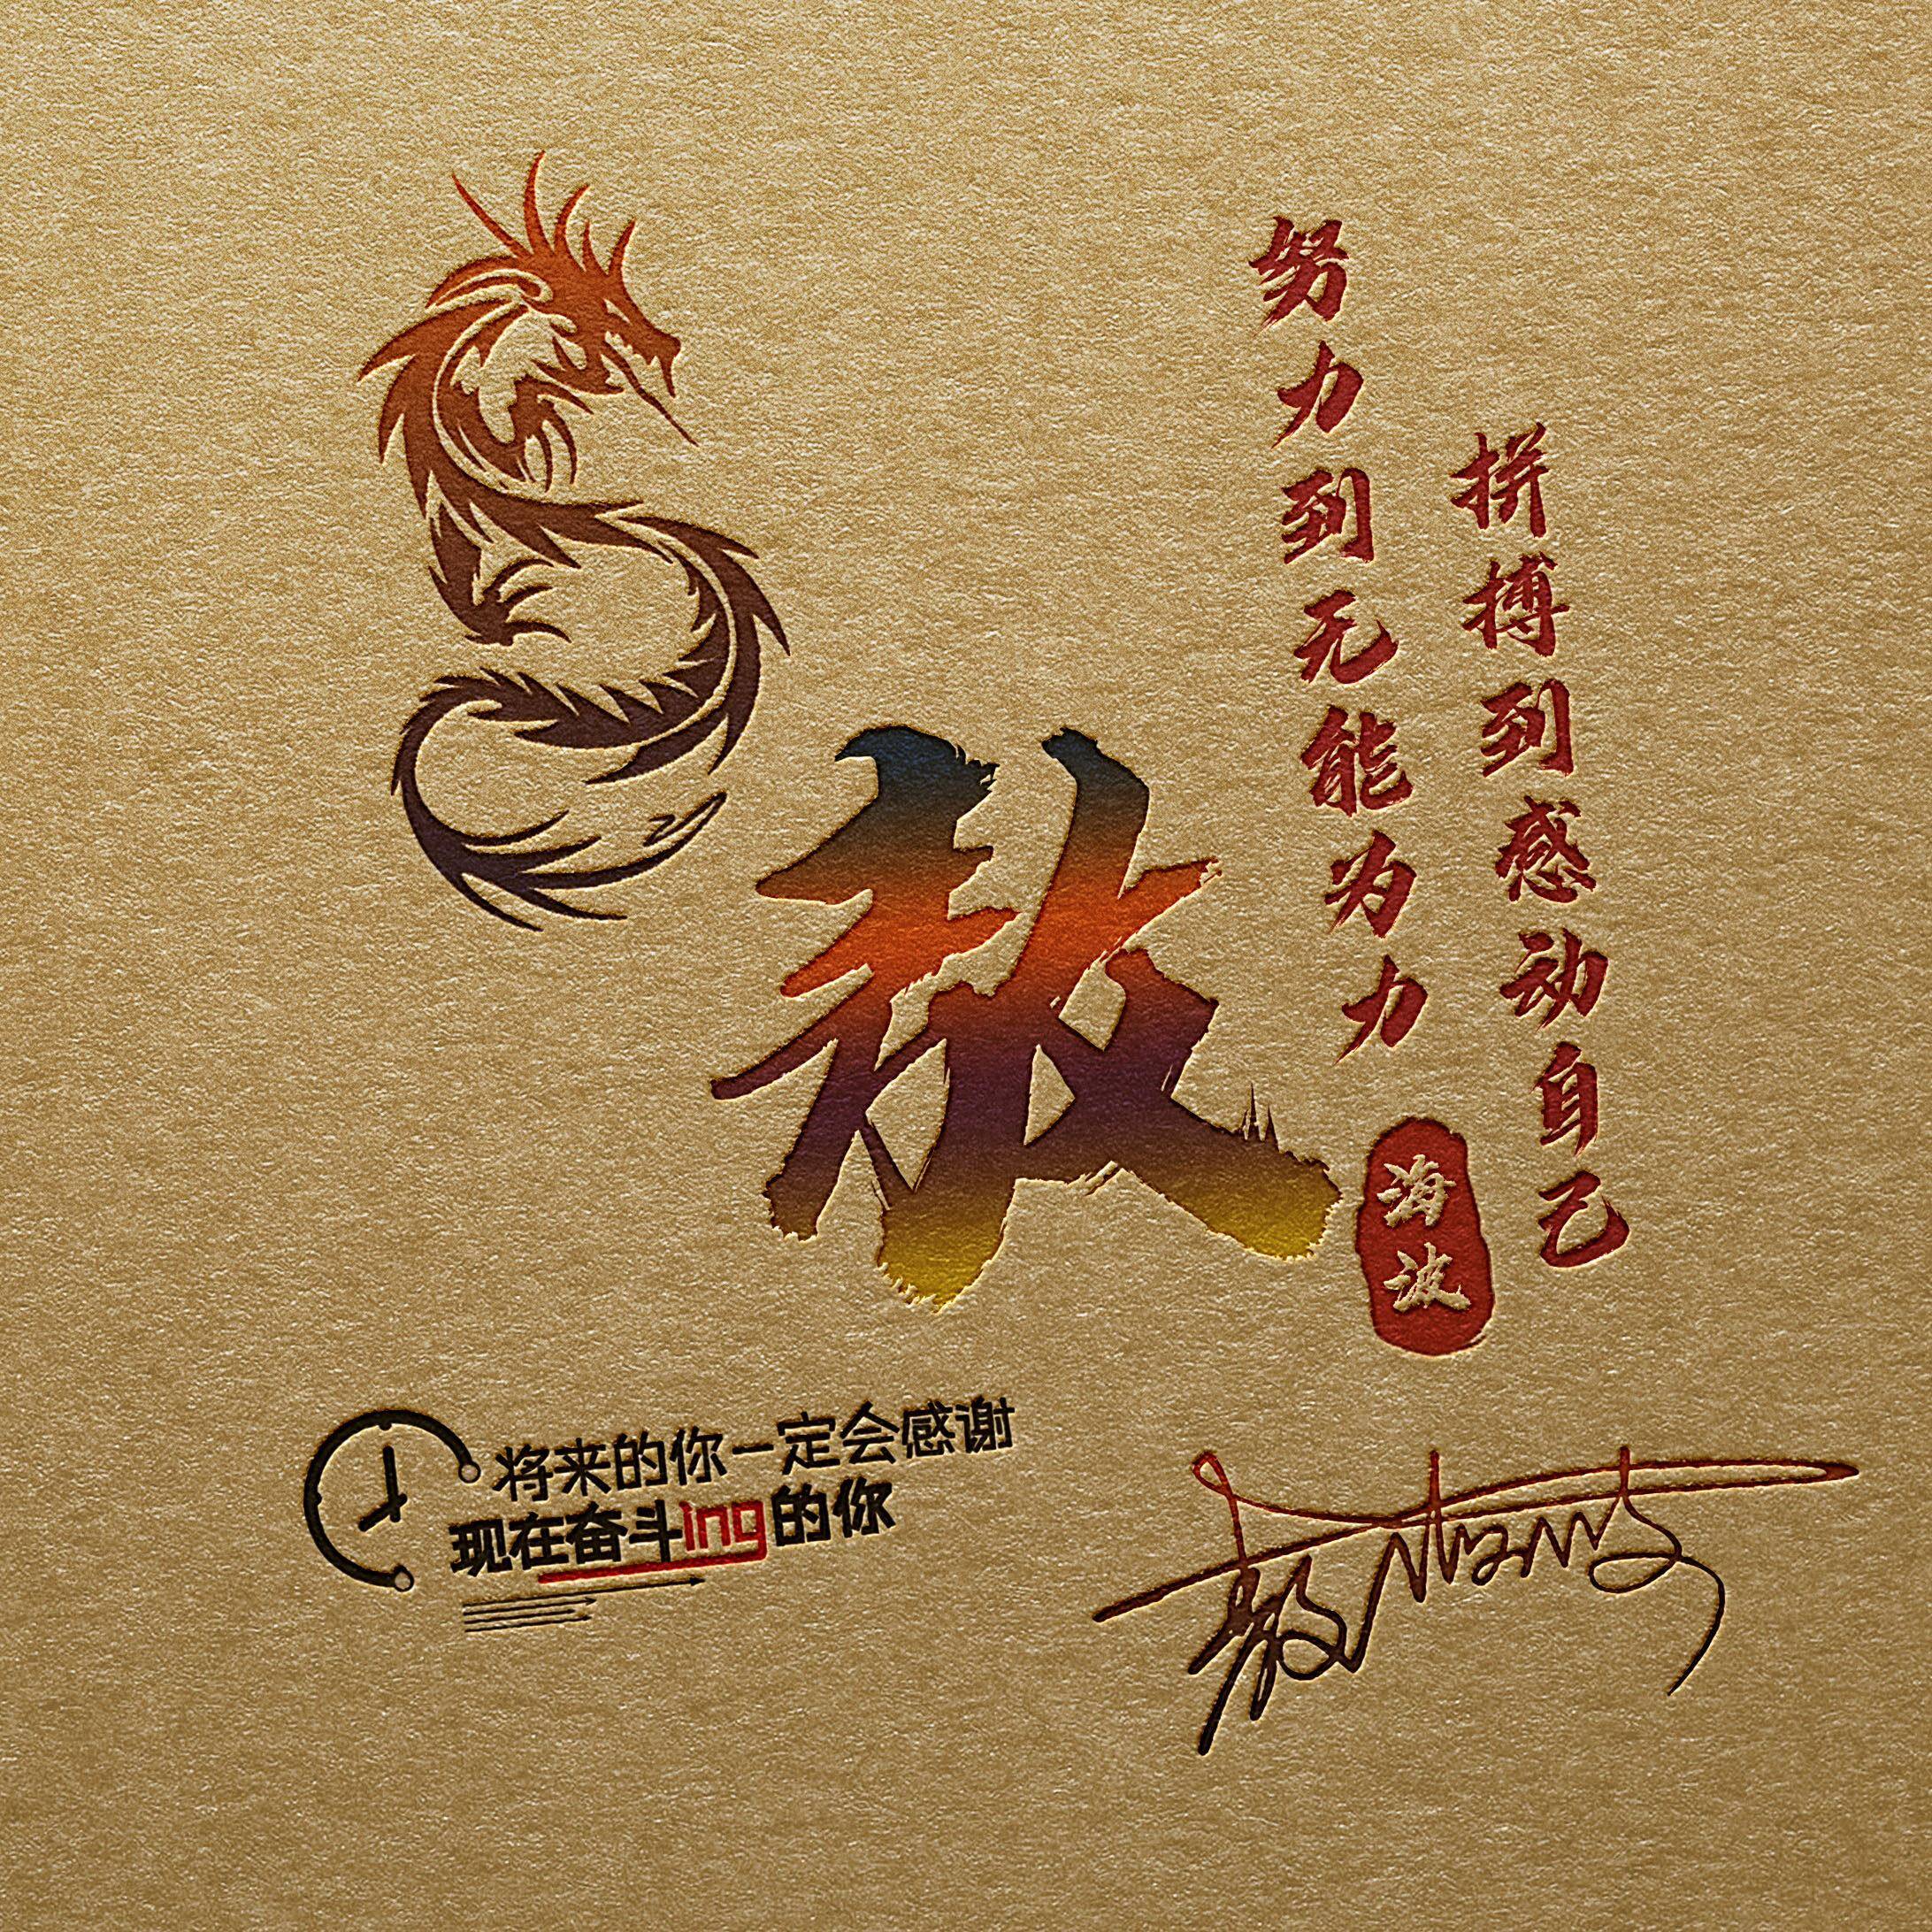 努力到无能为力
拼搏到感动自己
敖
海波
将来的你一定会感谢
现在奋斗ing的你